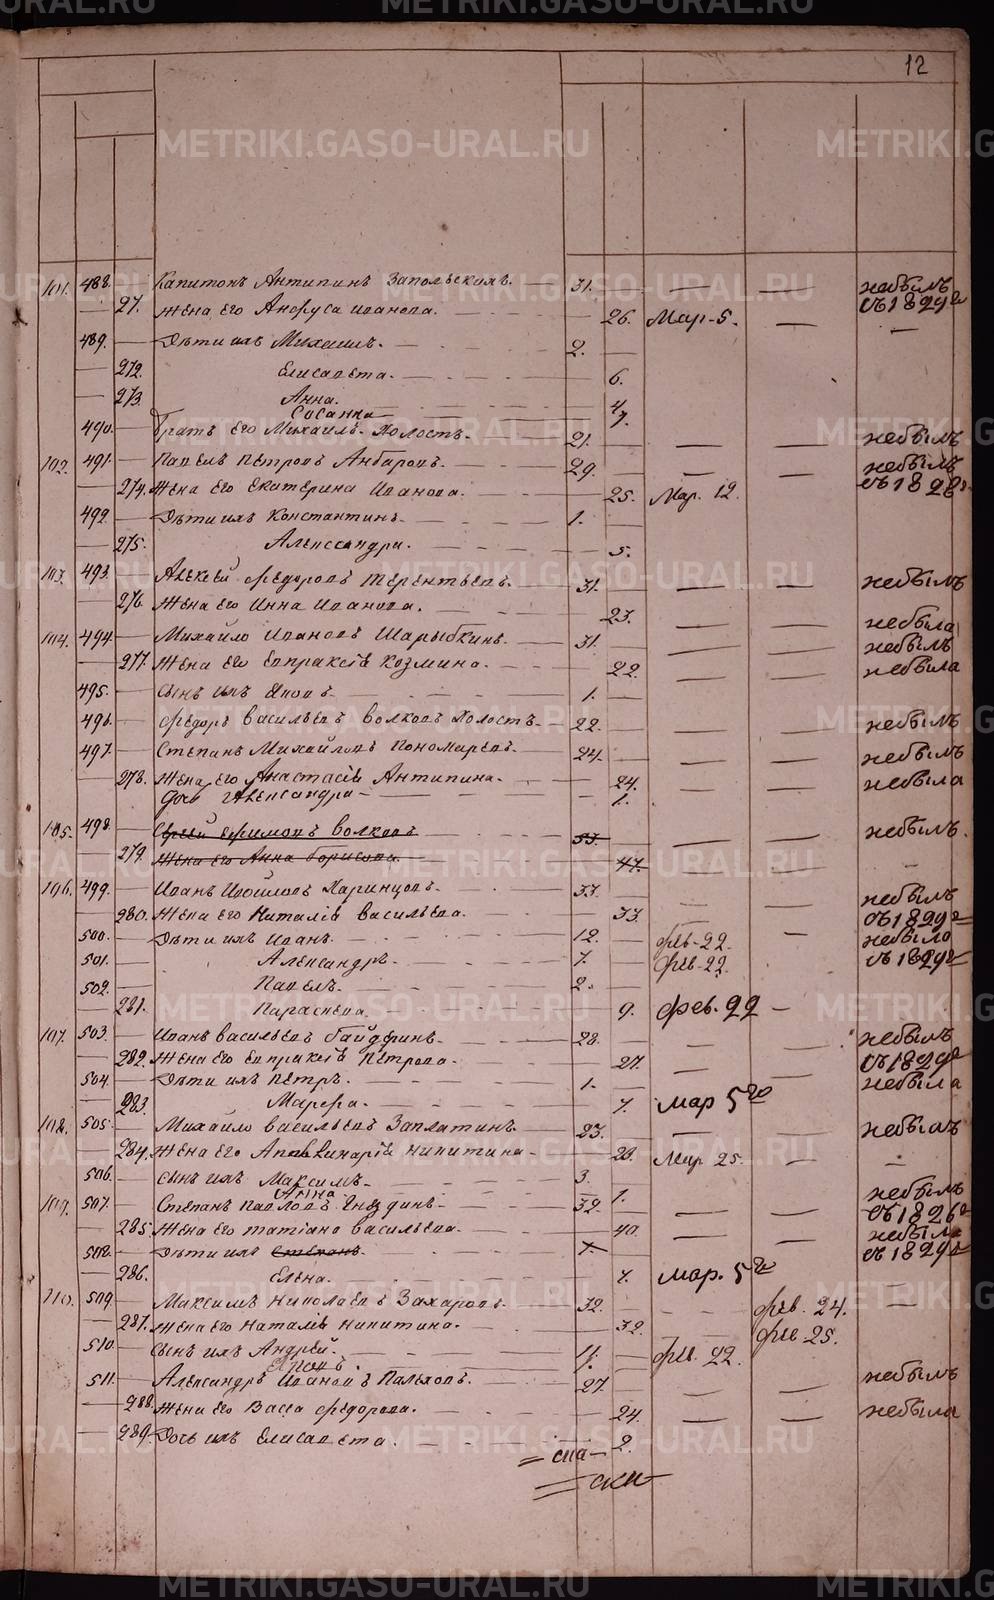 12
101. 488. Капитонъ Антипинъ Запольскихъ. 31. небылъ
271. Жена его Анфуса Иванова. 26. Мар. 5. съ 1829го
489. Дѣти ихъ Михаилъ. 2.
272. Елисавета. 6.
273. Анна. 4.
Сосанна 1.
490. Братъ его Михаилъ. Холостъ. 21. небылъ
102. 491. Павелъ Петровъ Анбаровъ. 29. небылъ
274. Жена его Екатерина Иванова. 25. Мар. 12. съ 1828
492. Дѣти ихъ Константинъ. 1.
275. Александра. 5.
103. 493. Алексѣй Федоровъ Терентьевъ. 31. небылъ
276. Жена его Инна Иванова. 23. небыла
104. 494. Михайло Ивановъ Шарыбкинъ. 31. небылъ
277. Жена его Евпраксія Козмина. 22. небыла
495. Сынъ ихъ Яковъ. 1.
496. Федоръ Васильевъ Волковъ Холостъ. 22. небылъ
497. Степанъ Михайловъ Пономаревъ. 24. небылъ
278. Жена его Анастасія Антипина. 24. небыла
дочь Александра 1.
105. 498. Сергѣй Ефимовъ Волковъ 53. небылъ.
279. Жена его Анна Борисова. 47.
106. 499. Иванъ Измайловъ Харинцовъ. 33. небылъ
280. Жена его Наталія Васильева. 33. съ 1829го
500. Дѣти ихъ Иванъ. 12. фев. 22. небыла
501. Александръ. 7. фев. 22. съ 1829го
502. Павелъ. 2.
281. Параскева. 9. фев. 22
107. 503. Иванъ Васильевъ Гайдфинъ. 28. небылъ
282. Жена его Евпраксія Петрова. 27. съ 1829го
504. Дѣти ихъ Петръ. 1. небыла
283. Марфа. 7. мар 5го
108. 505. Михайло Васильевъ Заплатинъ. 23. небылъ
284. Жена его Апполинарія Никитина 28. Мар 25.
506. Сынъ ихъ Максимъ. 3.
Анна 1. небылъ
109. 507. Степанъ Павловъ Гнѣздинъ. 32. съ 1826го
285. Жена его Татіана Васильева. 40. небыла
508. Дѣти ихъ Степанъ. 1. съ 1829го
286. Елена. 7. мар. 5го
110. 509. Максимъ Николаевъ Захаровъ. 32. фев. 24.
287. Жена его Наталія Никитина. 32. фев 25.
510. Сынъ ихъ Андрей. 11. фев. 22.
Яковъ.
511. Александръ Ивановъ Палеховъ. 27. небылъ
288. Жена его Васса Федорова. 24. небыла
289. Дочь ихъ Елисавета. 2.